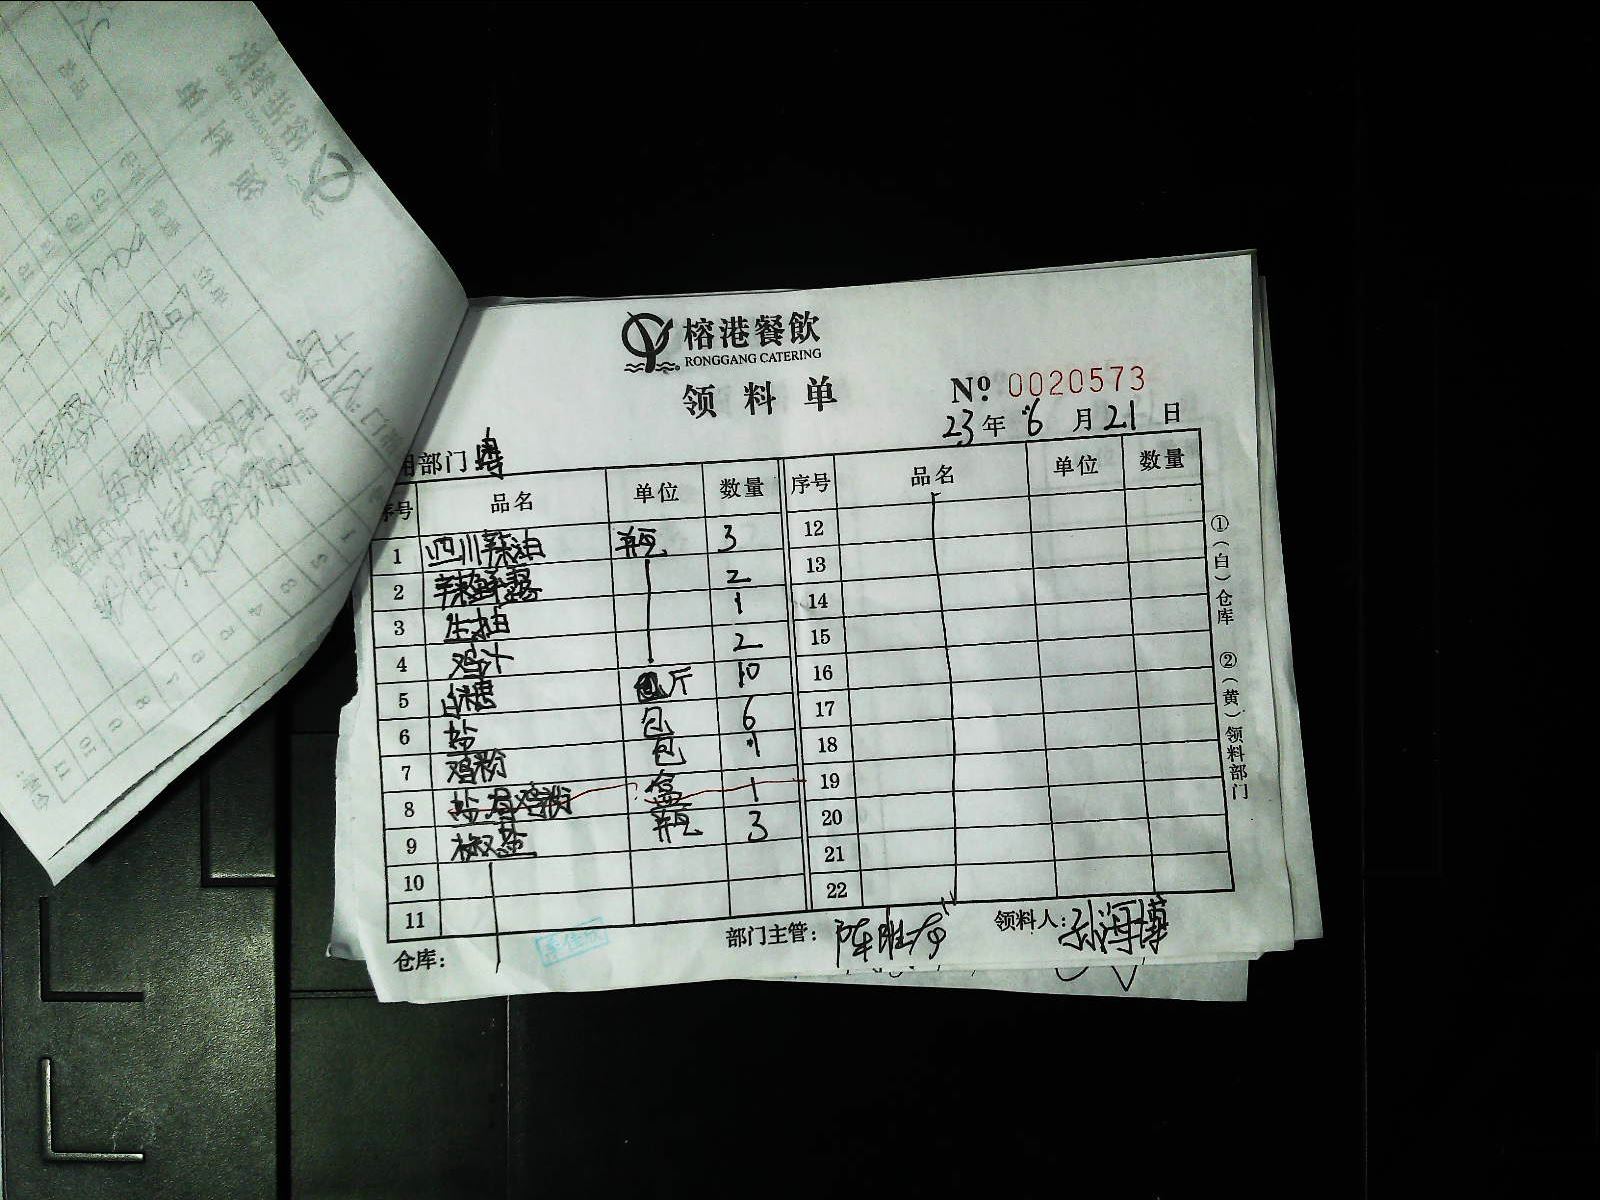 榕港餐飲
RONGGANG CATERING
领料单
№ 0020573
23年 6月21日
用部门 粤
序号 品名 单位 数量 序号 品名 单位 数量
1 四川辣油 瓶 3 12
2 辣鲜露 2 13
3 生抽 1 14
4 鸡汁 2 15
5 白糖 斤 10 16
6 盐 包 6 17
7 鸡粉 包 1 18
8 盐焗鸡粉 盒 1 19
9 椒盐 瓶 3 20
10 21
11 22
仓库: 部门主管: 领料人: 孙海博
①(白)仓库 ②(黄)领料部门